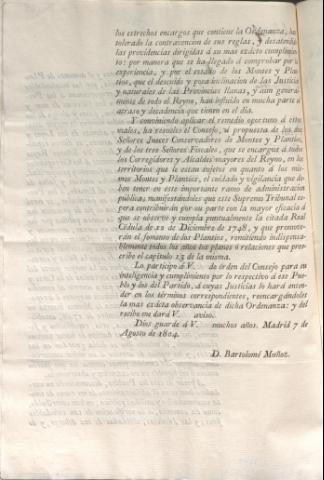 los estrechos encargos que contiene la Ordenanza, ha
tolerado la contravencion de sus reglas, y desatendido
las providencias dirigidas á su mas exâcto cumplimien-
to: por manera que se ha llegado á comprobar por la
experiencia, y por el estado de los Montes y Plan-
tíos, que el descuido y poca inclinacion de las Justicias
y naturales de las Provincias llanas, y aun general-
mente de todo el Reyno, han influido en mucha parte al
atraso y decadencia que tienen en el dia.
Y conviniendo aplicar el remedio oportuno á estos
males, ha resuelto el Consejo, á propuesta de los dos
Señores Jueces Conservadores de Montes y Plantíos,
y de los tres Señores Fiscales, que se encargue á todos
los Corregidores y Alcaldes mayores del Reyno, en los
territorios que le estan sujetos en quanto á los mis-
mos Montes y Plantíos, el cuidado y vigilancia que de-
ben tener en este importante ramo de administracion
pública, manifestándoles que este Supremo Tribunal es-
pera contribuirán por su parte con la mayor eficacia á
que se observe y cumpla puntualmente la citada Real
Cédula de 12 de Diciembre de 1748, y que promove-
rán el fomento de los Plantíos, remitiendo indispensa-
blemente todos los años los planes ó relaciones que pres-
cribe el capítulo 13 de la misma.
Lo participo á V. de órden del Consejo para su
inteligencia y cumplimiento por lo respectivo á ese Pue-
blo y los del Partido, á cuyas Justicias lo hará enten-
der en los términos correspondientes, reencargándoles
la mas exâcta observancia de dicha Ordenanza: y del
recibo me dará V. aviso.
Dios guarde á V. muchos años. Madrid 7 de
Agosto de 1804.
D. Bartolomé Muñoz.